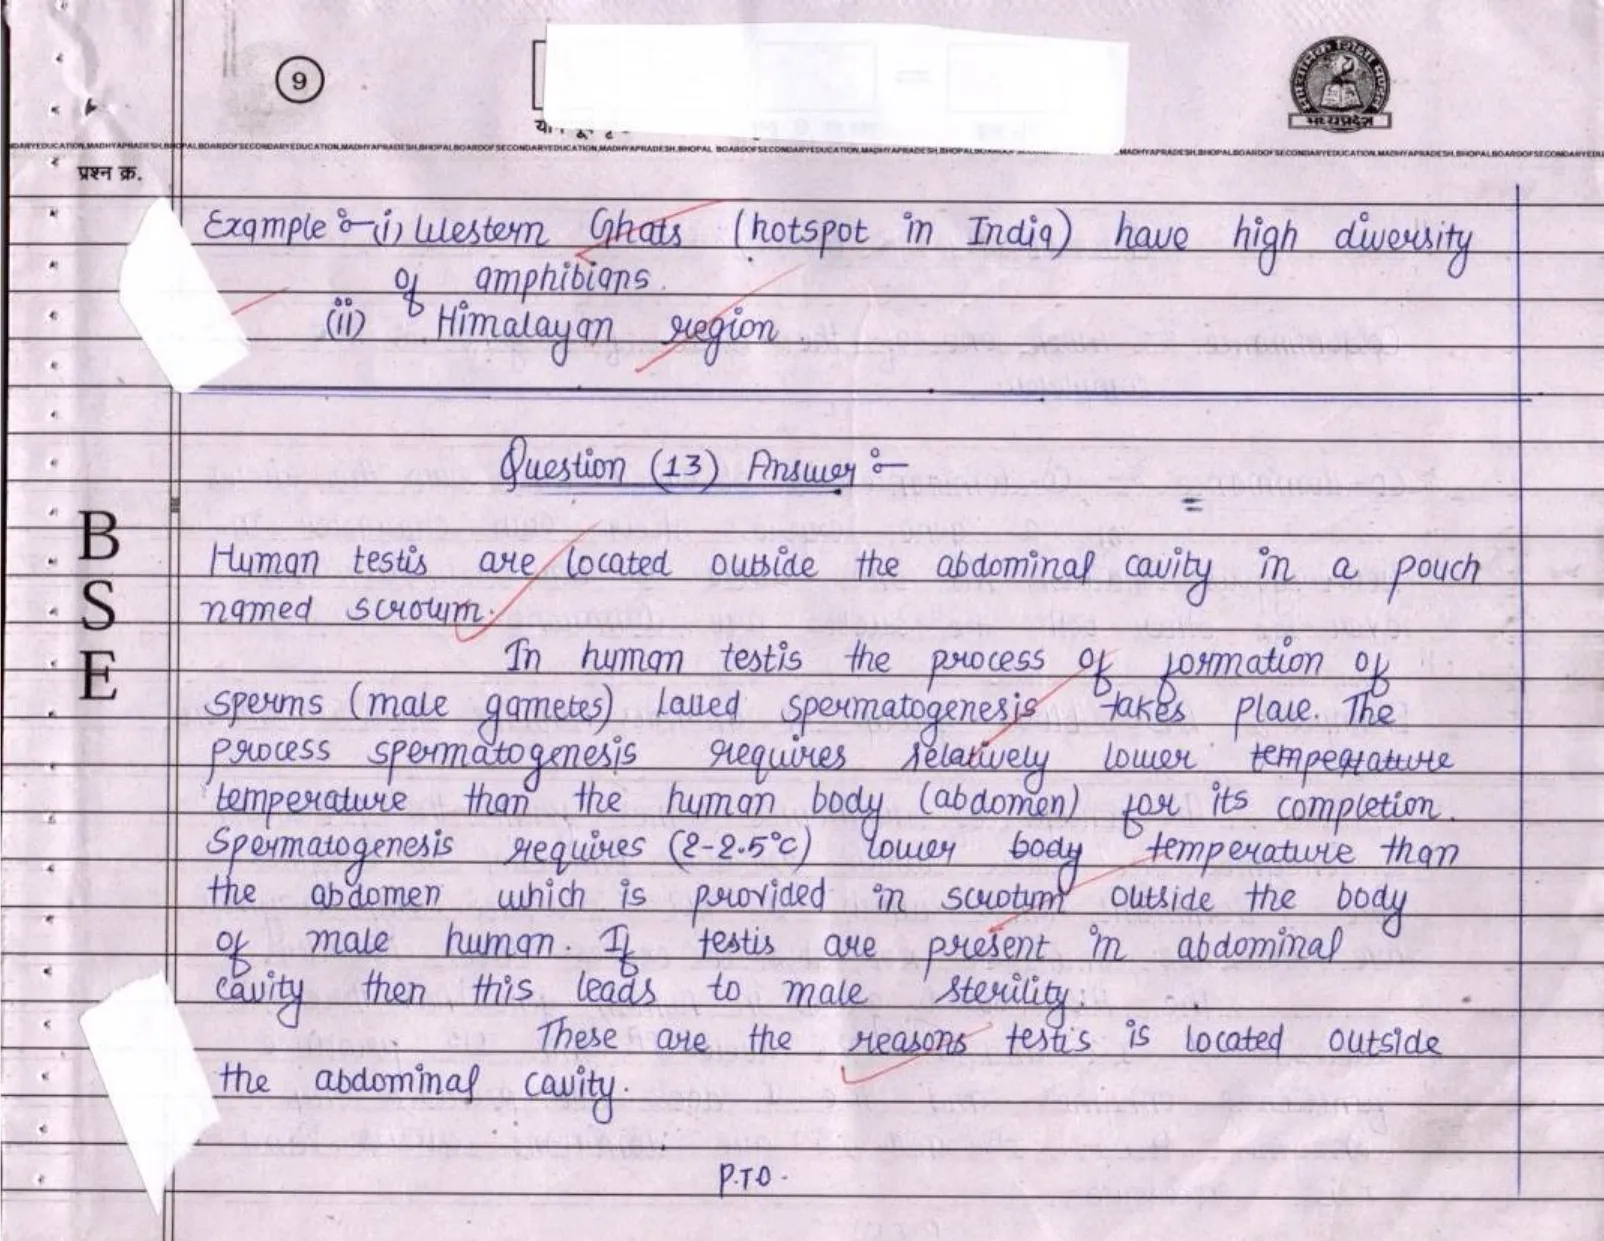 9
मध्यप्रदेश
प्रश्न क्र.
Example :- (i) Western Ghats (hotspot in India) have high diversity
of amphibians.
(ii) Himalayan region
Question (13) Answer :-
=
B
S
E
Human testis are located outside the abdominal cavity in a pouch
named scrotum.
In human testis the process of formation of
sperms (male gametes) called spermatogenesis takes place. The
process spermatogenesis requires relatively lower temperature
temperature than the human body (abdomen) for its completion.
Spermatogenesis requires (2-2.5°C) lower body temperature than
the abdomen which is provided in scrotum outside the body
of male human. If testis are present in abdominal
cavity then this leads to male sterility.
These are the reasons testis is located outside
the abdominal cavity.
P.T.O.